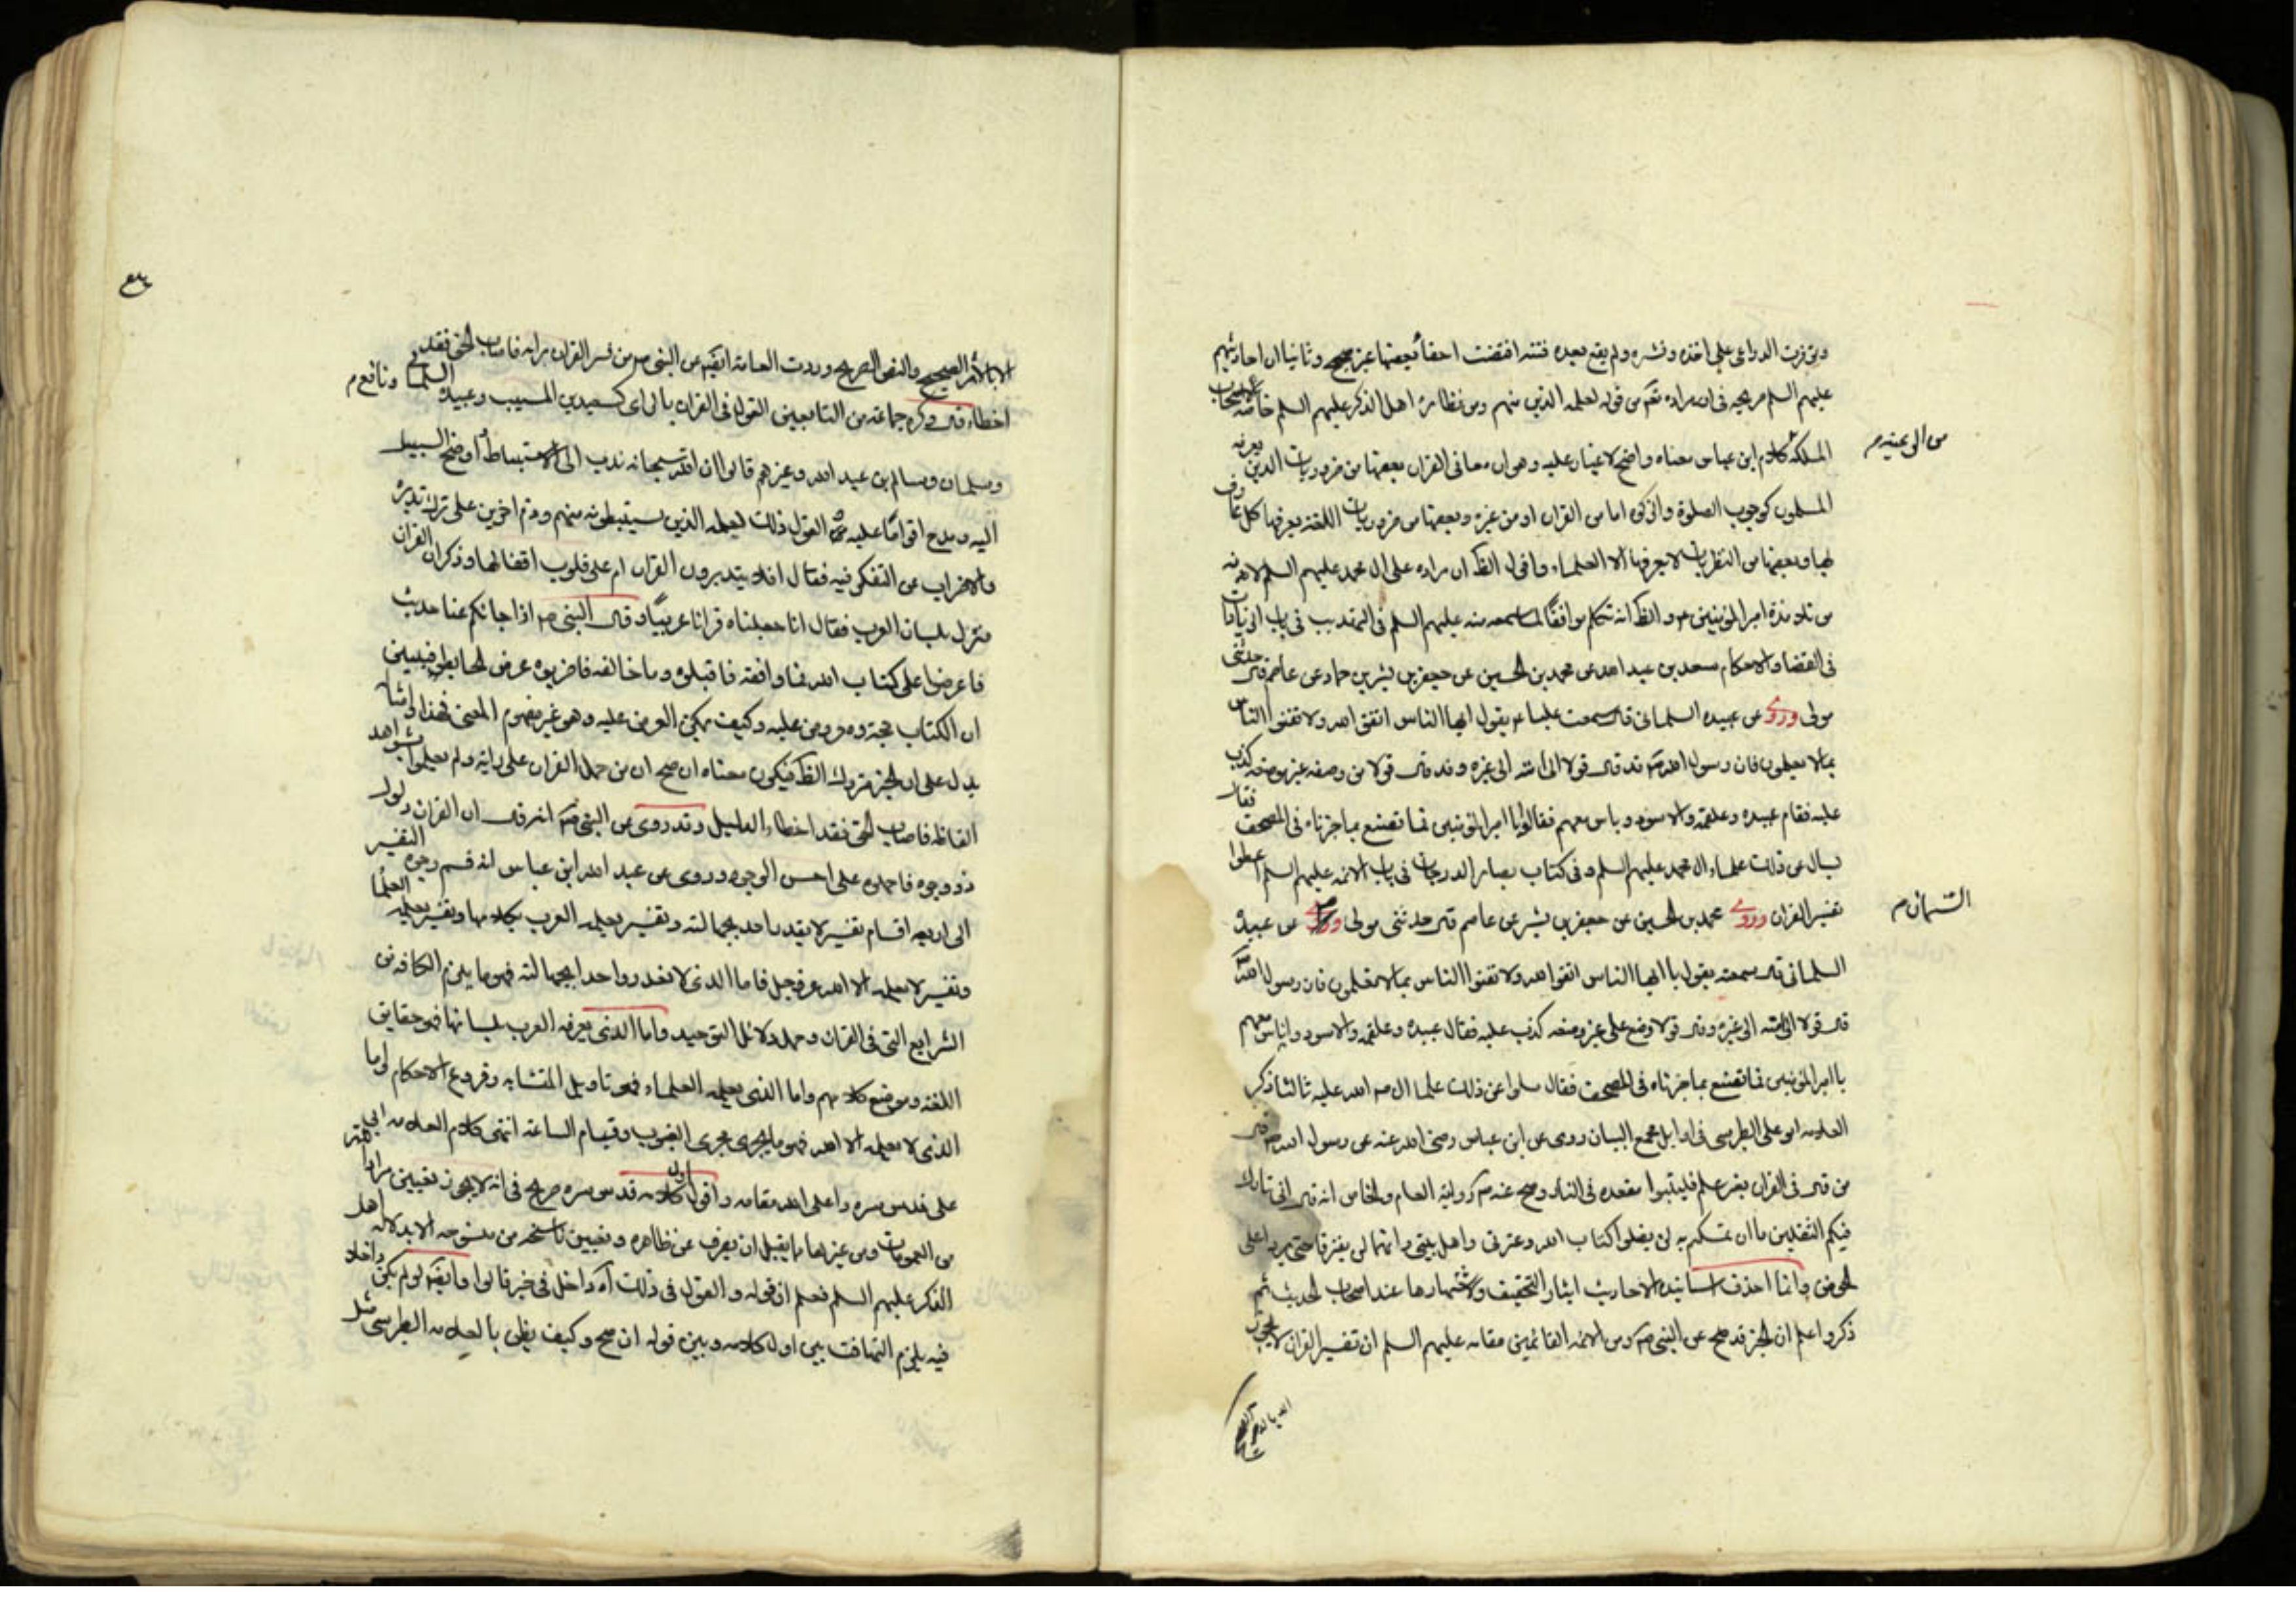 وتوفرت الدواعي على اخذه ونشره ولم يقع بعده فتنة اقتضت اخفاء بعضها غير صحيح وثانيا ان احاديثهم
عليهم السلم صريحة في ان مراده تعم من قوله لعلمه الذين منهم ومن نظائره اهل الذكر عليهم السلم خاصة
كلام ابن عباس معناه واضح لا غبار عليه وهو ان معاني القران بعضها من ضروريات الدين يعرفه
من الى عينه م
المسلمون كوجوب الصلوة والزكوة اما من القران او من غيره وبعضها من ضروريات اللغة يعرفها كل عارف
بها وبعضها من النظريات لا يعرفها الا العلماء واقول الظ ان مراده علي ال محمد عليهم السلم لانه
من تلامذة امير المؤمنين ع والظ انه تكلم موافقا لما سمعه منه عليهم السلم في التهذيب في باب الزيادات
في القضا والاحكام سعد بن عبد الله عن محمد بن الحسين عن جعفر بن بشير بن حماد عن عاصم قال حدثني
مولى عن عبيدة السلماني قال سمعت عليا ع يقول ايها الناس اتقوا الله ولا تفتوا الناس
بما لا تعلمون فان رسول الله ص قد قال قولا الى منه الى غيره وقد قال قولا من وضعه غير موضعه كذب
عليه فقام عبيدة وعلقمة والاسود واناس معهم فقالوا يا امير المؤمنين فما نصنع بما خبرناه في المصحف فقال
يسال عن ذلك علماء ال محمد عليهم السلم وفي كتاب بصائر الدرجات في باب الائمة عليهم السلم اعطوا
تفسير القران محمد بن الحسين عن جعفر بن بشير عن عاصم قال حدثني مولى عن عبيدة
السلماني قال سمعته يقول يا ايها الناس اتقوا الله ولا تفتوا الناس بما لا تعلمون فان رسول الله ص
قال قولا الى منه الى غيره وقال قولا وضع على غير وضعه كذب عليه فقال عبيدة وعلقمة والاسود واناس معهم
يا امير المؤمنين فما نصنع بما خبرناه في المصحف فقال سلوا عن ذلك علما ال م صلى الله عليه ثالثا ذكر
العلامة ابو علي الطبرسي في اوايل مجمع البيان روى عن ابن عباس رضى الله عنه عن رسول الله ص قال
من قال في القران بغير علم فليتبوا مقعده في النار وصح عنه ص رواية العام والخاص انه قال اني تارك
فيكم الثقلين ما ان تمسكتم به لن تضلوا كتاب الله وعترتي واهل بيتي وانهما لن يفترقا حتى يردا على
الحوض وانما احذف اسانيد الاحاديث ايثار التخفيف ولاشتهارها عند اصحاب الحديث ثم
ذكر واعلم ان الخبر قد صح عن النبي ص وعن الائمة القائمين مقامه عليهم السلم ان تفسير القران لا يجوز
الا بالاثر الصحيح والنص الصريح وروت العامة ايضا عن النبي ص من فسر القران برايه فاصاب الحق فقد
اخطاء قال وكره جماعة من التابعين القول في القران بالراى كسعيد بن المسيب وعبيدة السلماني ونافع م
وسليمان وسالم بن عبد الله وغيرهم قالوا ان الله سبحانه ندب الى الاستنباط واوضح السبيل
اليه ومدح اقواما عليه القول ذلك لعلمه الذين يستنبطونه منهم وذم اخرين على ترك تدبره
والاضراب عن التفكر فيه فقال افلا يتدبرون القران ام على قلوب اقفالها وذكر ان القران
منزل بلسان العرب فقال انا جعلناه قرانا عربيا وقال النبي ص اذا جائكم عنا حديث
فاعرضوا على كتاب الله فما وافقه فاقبلوه وما خالفه فاضربوه عرض الحايط فبين
ان الكتاب حجة ومعروض عليه وكيف يمكن العرض عليه وهو غير مفهوم المعنى فهذا وامثاله
يدل على ان الخبر متروك الظ فيكون معناه ان صح ان من حمل القران على رايه ولم يعلم بشواهد
الفاظه فاصاب الحق فقد اخطاء الدليل وقد روى عن النبي ص انه قال ان القران ذلول
ذو وجوه فاحملوه على احسن الوجوه وروى عن عبد الله ابن عباس انه قسم وجوه التفسير
الى اربعة اقسام تفسير لا يعذر احد بجهالته وتفسير يعلمه العرب بكلامها وتفسير يعلمه العلما
وتفسير لا يعلمه الا الله عز وجل فاما الذي لا يعذر واحد بجهالته فهو ما يلزم الكافة من
الشرايع التي في القران وجمل دلائل التوحيد واما الذي يعرفه العرب بلسانها فهو حقايق
اللغة وموضع كلامهم واما الذي يعلمه العلماء فهو تاويل المتشابه وفروع الاحكام واما
الذي لا يعلمه الا الله فهو ما يجري مجرى الغيوب وقيام الساعة انتهى كلام العلامة ابي
على قدس سره واعلى الله مقامه واقول كلامه قدس سره صريح في انه لا يجوز تعيين مراد الله
من العمومات ومن غيرها مما يقبل ان يصرف عن ظاهره وتعيين ناسخه من منسوخه الا بدلالة اهل
الذكر عليهم السلم فعلم ان قوله والقول في ذلك اه داخل في خبر قالوا وايضا لو لم يكن داخلا
فيه يلزم التهافت بين اول كلامه وبين قوله ان صح وكيف يظن بالعلامة الطبرسي مثل